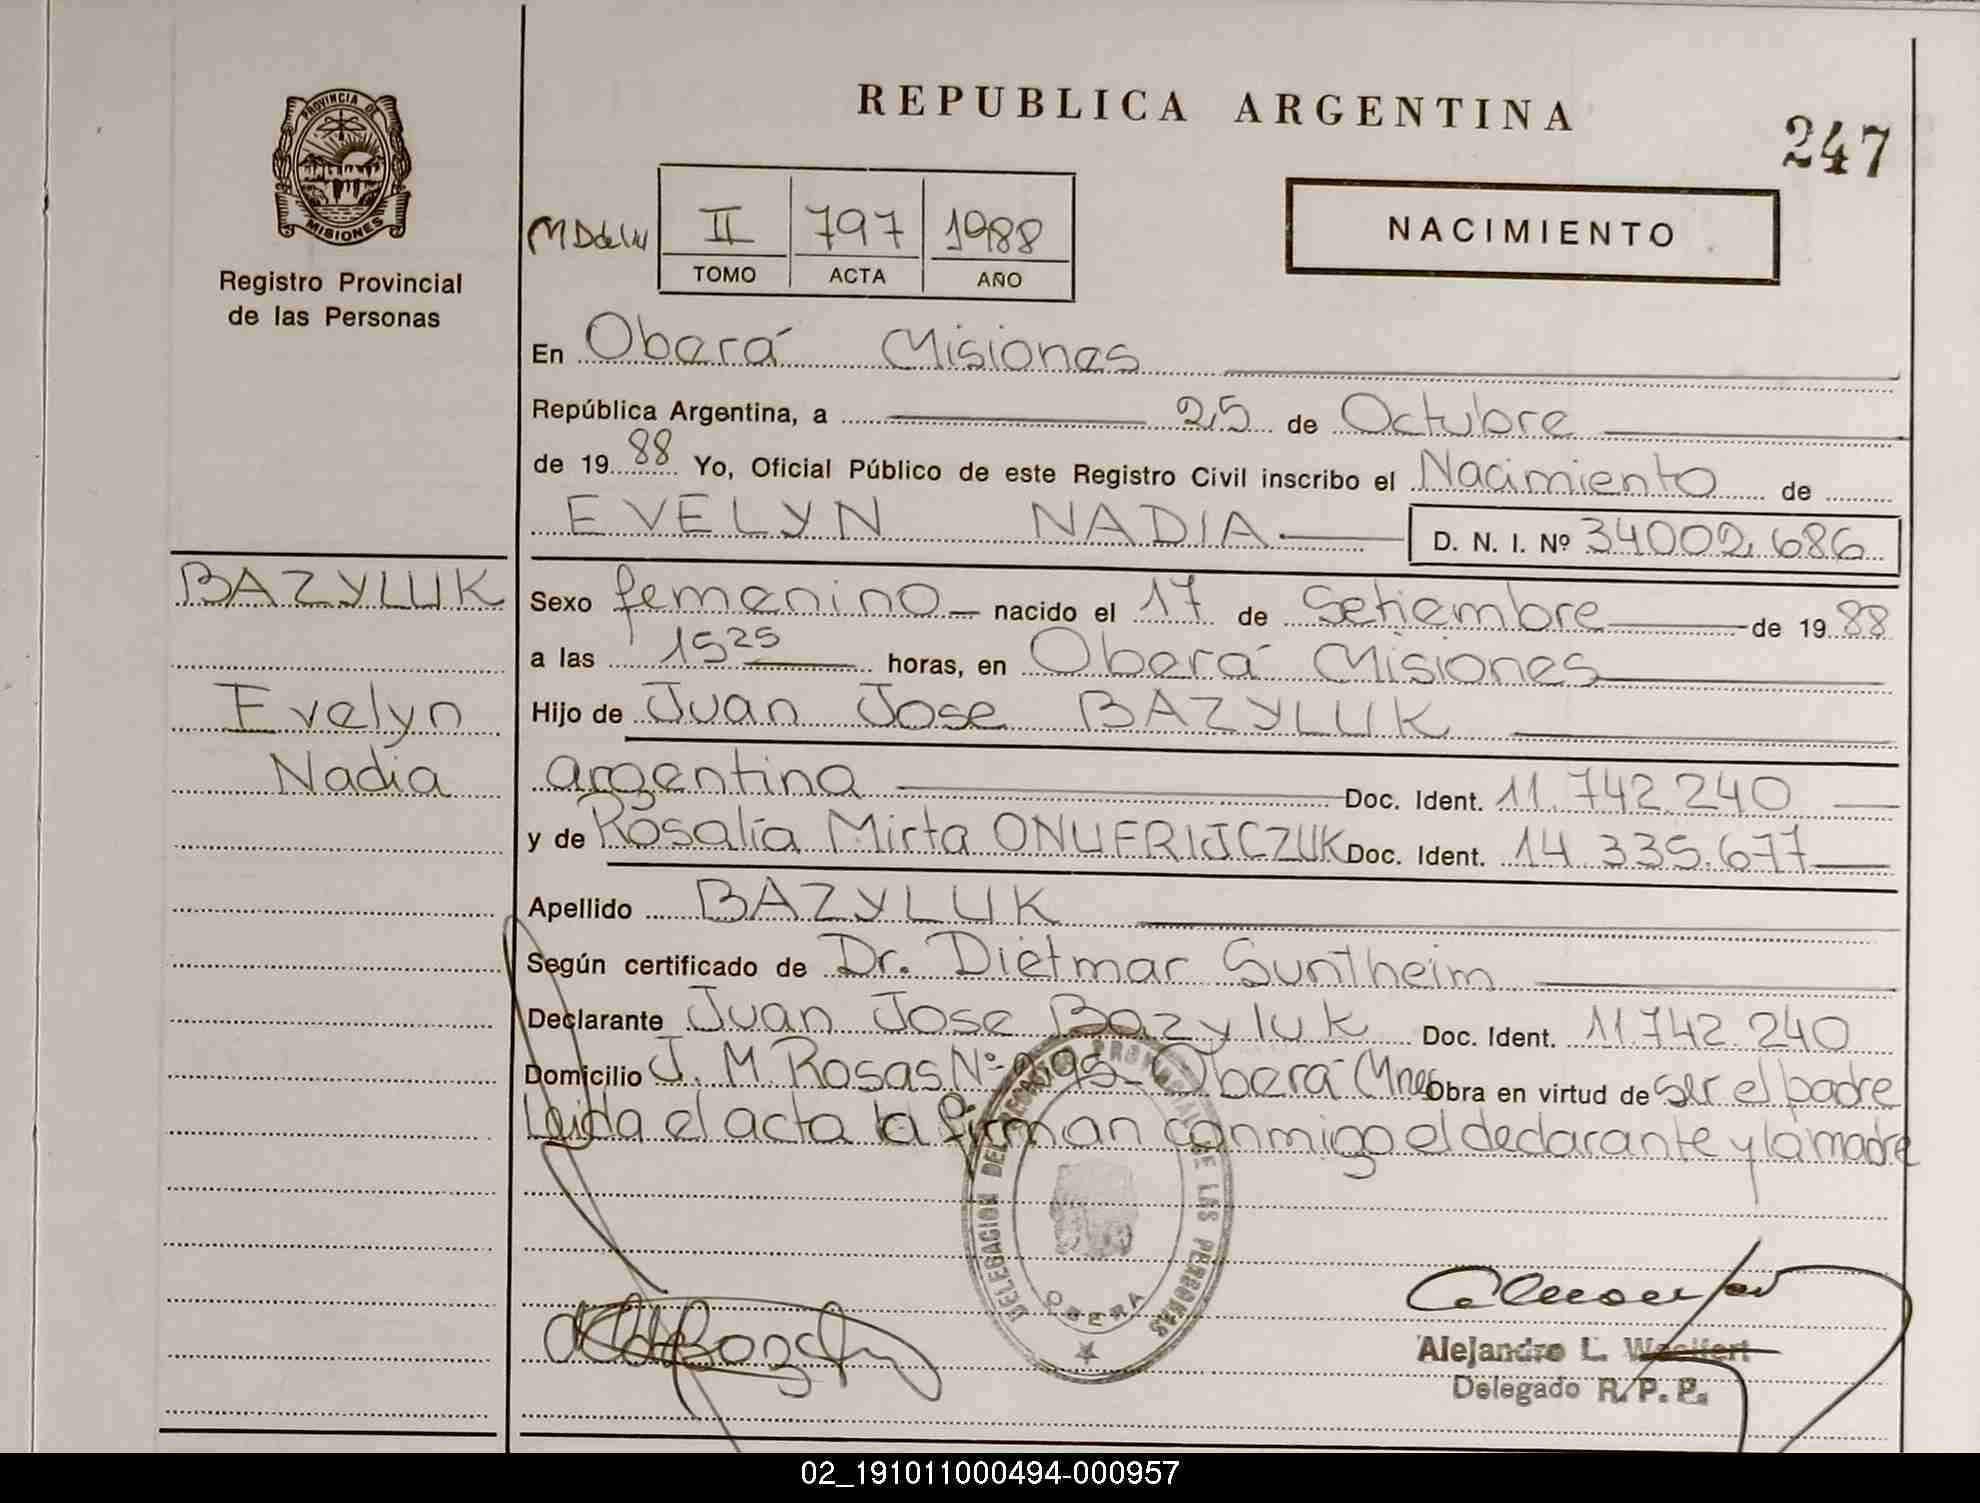 REPUBLICA ARGENTINA
247
PROVINCIA DE
MISIONES
Registro Provincial
de las Personas
II 797 1988
TOMO ACTA AÑO
NACIMIENTO
En Oberá Misiones
República Argentina, a 25 de Octubre
de 1988 Yo, Oficial Público de este Registro Civil inscribo el Nacimiento de
EVELYN NADIA D. N. I. Nº 34002.686
BAZYLUK
Evelyn
Nadia
Sexo femenino nacido el 17 de Setiembre de 1988
a las 15 25 horas, en Oberá Misiones
Hijo de Juan Jose BAZYLUK
argentina Doc. Ident. 11.742.240
y de Rosalía Mirta ONUFRIJCZUK Doc. Ident. 14.335.677
Apellido BAZYLUK
Según certificado de Dr. Dietmar Suntheim
Declarante Juan Jose Bazyluk Doc. Ident. 11.742.240
Domicilio J. M. Rosas Nº Oberá Mnes Obra en virtud de ser el padre
Leida el acta la firman conmigo el declarante y la madre
DELEGACION DEL REGISTRO PROVINCIAL DE LAS PERSONAS
OBERA
Alejandro L.
Delegado R. P. P.
02_191011000494-000957